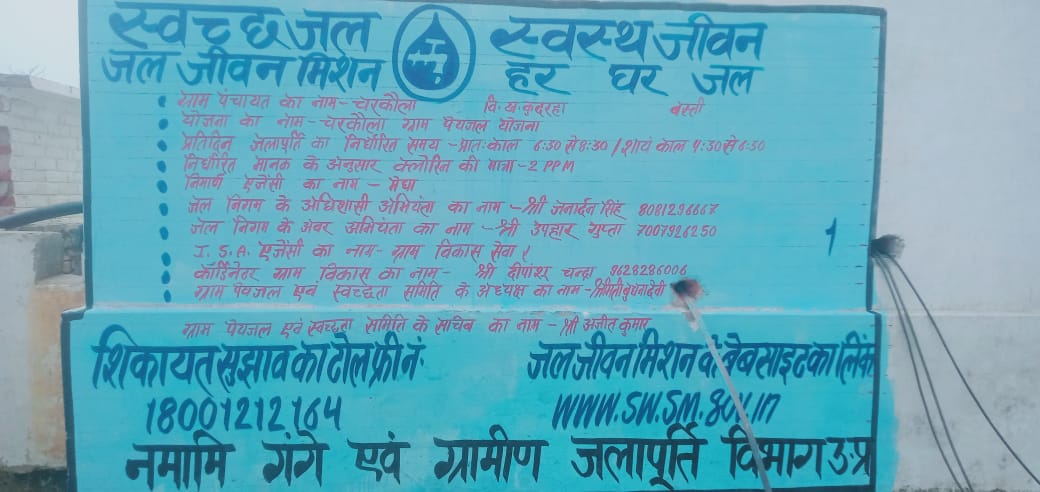 स्वच्छ जल स्वस्थ जीवन
जल जीवन मिशन हर घर जल
ग्राम पंचायत का नाम - चरकौला वि.ख. कुदरहा बस्ती
योजना का नाम - चरकौला ग्राम पेयजल योजना
प्रतिदिन जलापूर्ति का निर्धारित समय - प्रातः काल 6:30 से 8:30 / शायं काल 4:30 से 6:30
निर्धारित मानक के अनुसार क्लोरिन की मात्रा - 2 PPM
निमार्ण एजेंसी का नाम - मेघा
जल निगम के अधिशासी अभियंता का नाम - श्री जनार्दन सिंह 8081296667
जल निगम के अवर अभियंता का नाम - श्री उपहार गुप्ता 7007926250
I. S.A. एजेंसी का नाम - ग्राम विकास सेवा
कॉर्डिनेटर ग्राम विकास का नाम - श्री दीपांशू चन्द्रा 9628286006
ग्राम पेयजल एवं स्वच्छता समिति के अध्यक्ष का नाम - श्रीमती बुधनादेवी
1
ग्राम पेयजल एवं स्वच्छता समिति के सचिव का नाम - श्री अजीत कुमार
शिकायत सुझाव का टोल फ्री नं. जल जीवन मिशन के वेबसाइट का लिंक
18001212164 WWW.SWSM.gov.in
नमामि गंगे एवं ग्रामीण जलापूर्ति विभाग उ.प्र